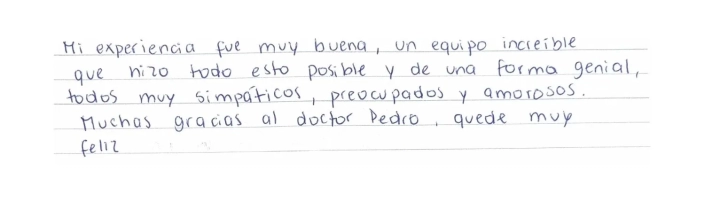 Mi experiencia fue muy buena, un equipo increible
que hizo todo esto posible y de una forma genial,
todos muy simpáticos, preocupados y amorosos.
Muchas gracias al doctor Pedro, quede muy
feliz